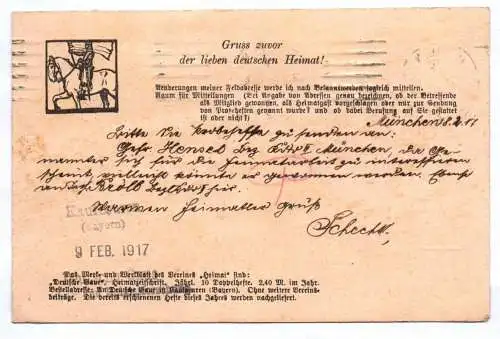 Gruss zuvor
der lieben deutschen Heimat!
Aenderungen meiner Feldadresse werde ich nach Bekanntwerden sogleich mitteilen.
Raum für Mitteilungen (Bei Angabe von Adressen genau bezeichnen, ob der Betreffende
als Mitglied gewonnen, als Heimatgast vorgeschlagen oder nur zur Sendung
von Probeheften genannt wurde? und ob dabei Berufung auf Sie gestattet
ist oder nicht?)
München 8.2.17
Bitte Sie Probehefte zu senden an:
Gefr. Hensel München, da Ge-
nannter sich für die Heimatarbeit zu interessieren
scheint, vielleicht könnte er gewonnen werden.
für.
Warmen Heimatler Gruß
Kaufbeuren
(Bayern)
9 FEB. 1917
Das Merk- und Werkblatt des Vereines „Heimat" sind:
„Deutsche Gaue", Heimatzeitschrift. Jährl. 10 Doppelhefte. 2,40 M. im Jahr.
Bestelladresse: An Deutsche Gaue in Kaufbeuren (Bayern). Ohne weitere Vereins-
beiträge. Die bereits erschienenen Hefte dieses Jahres werden nachgeliefert.